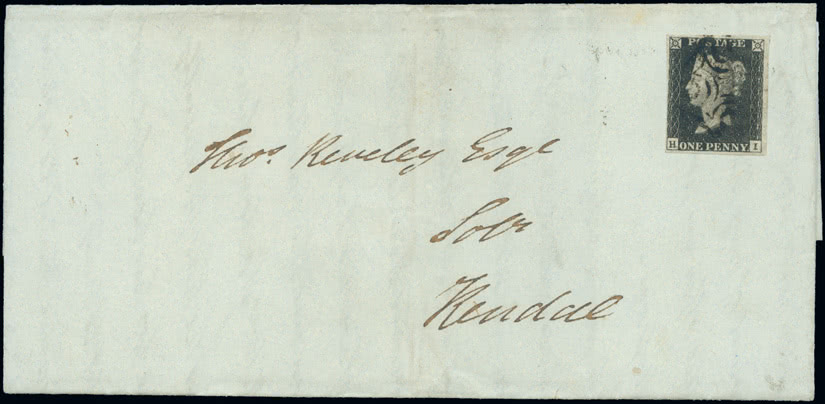 POSTAGE
H ONE PENNY I
Thos. Reveley Esqr
Solr
Kendal